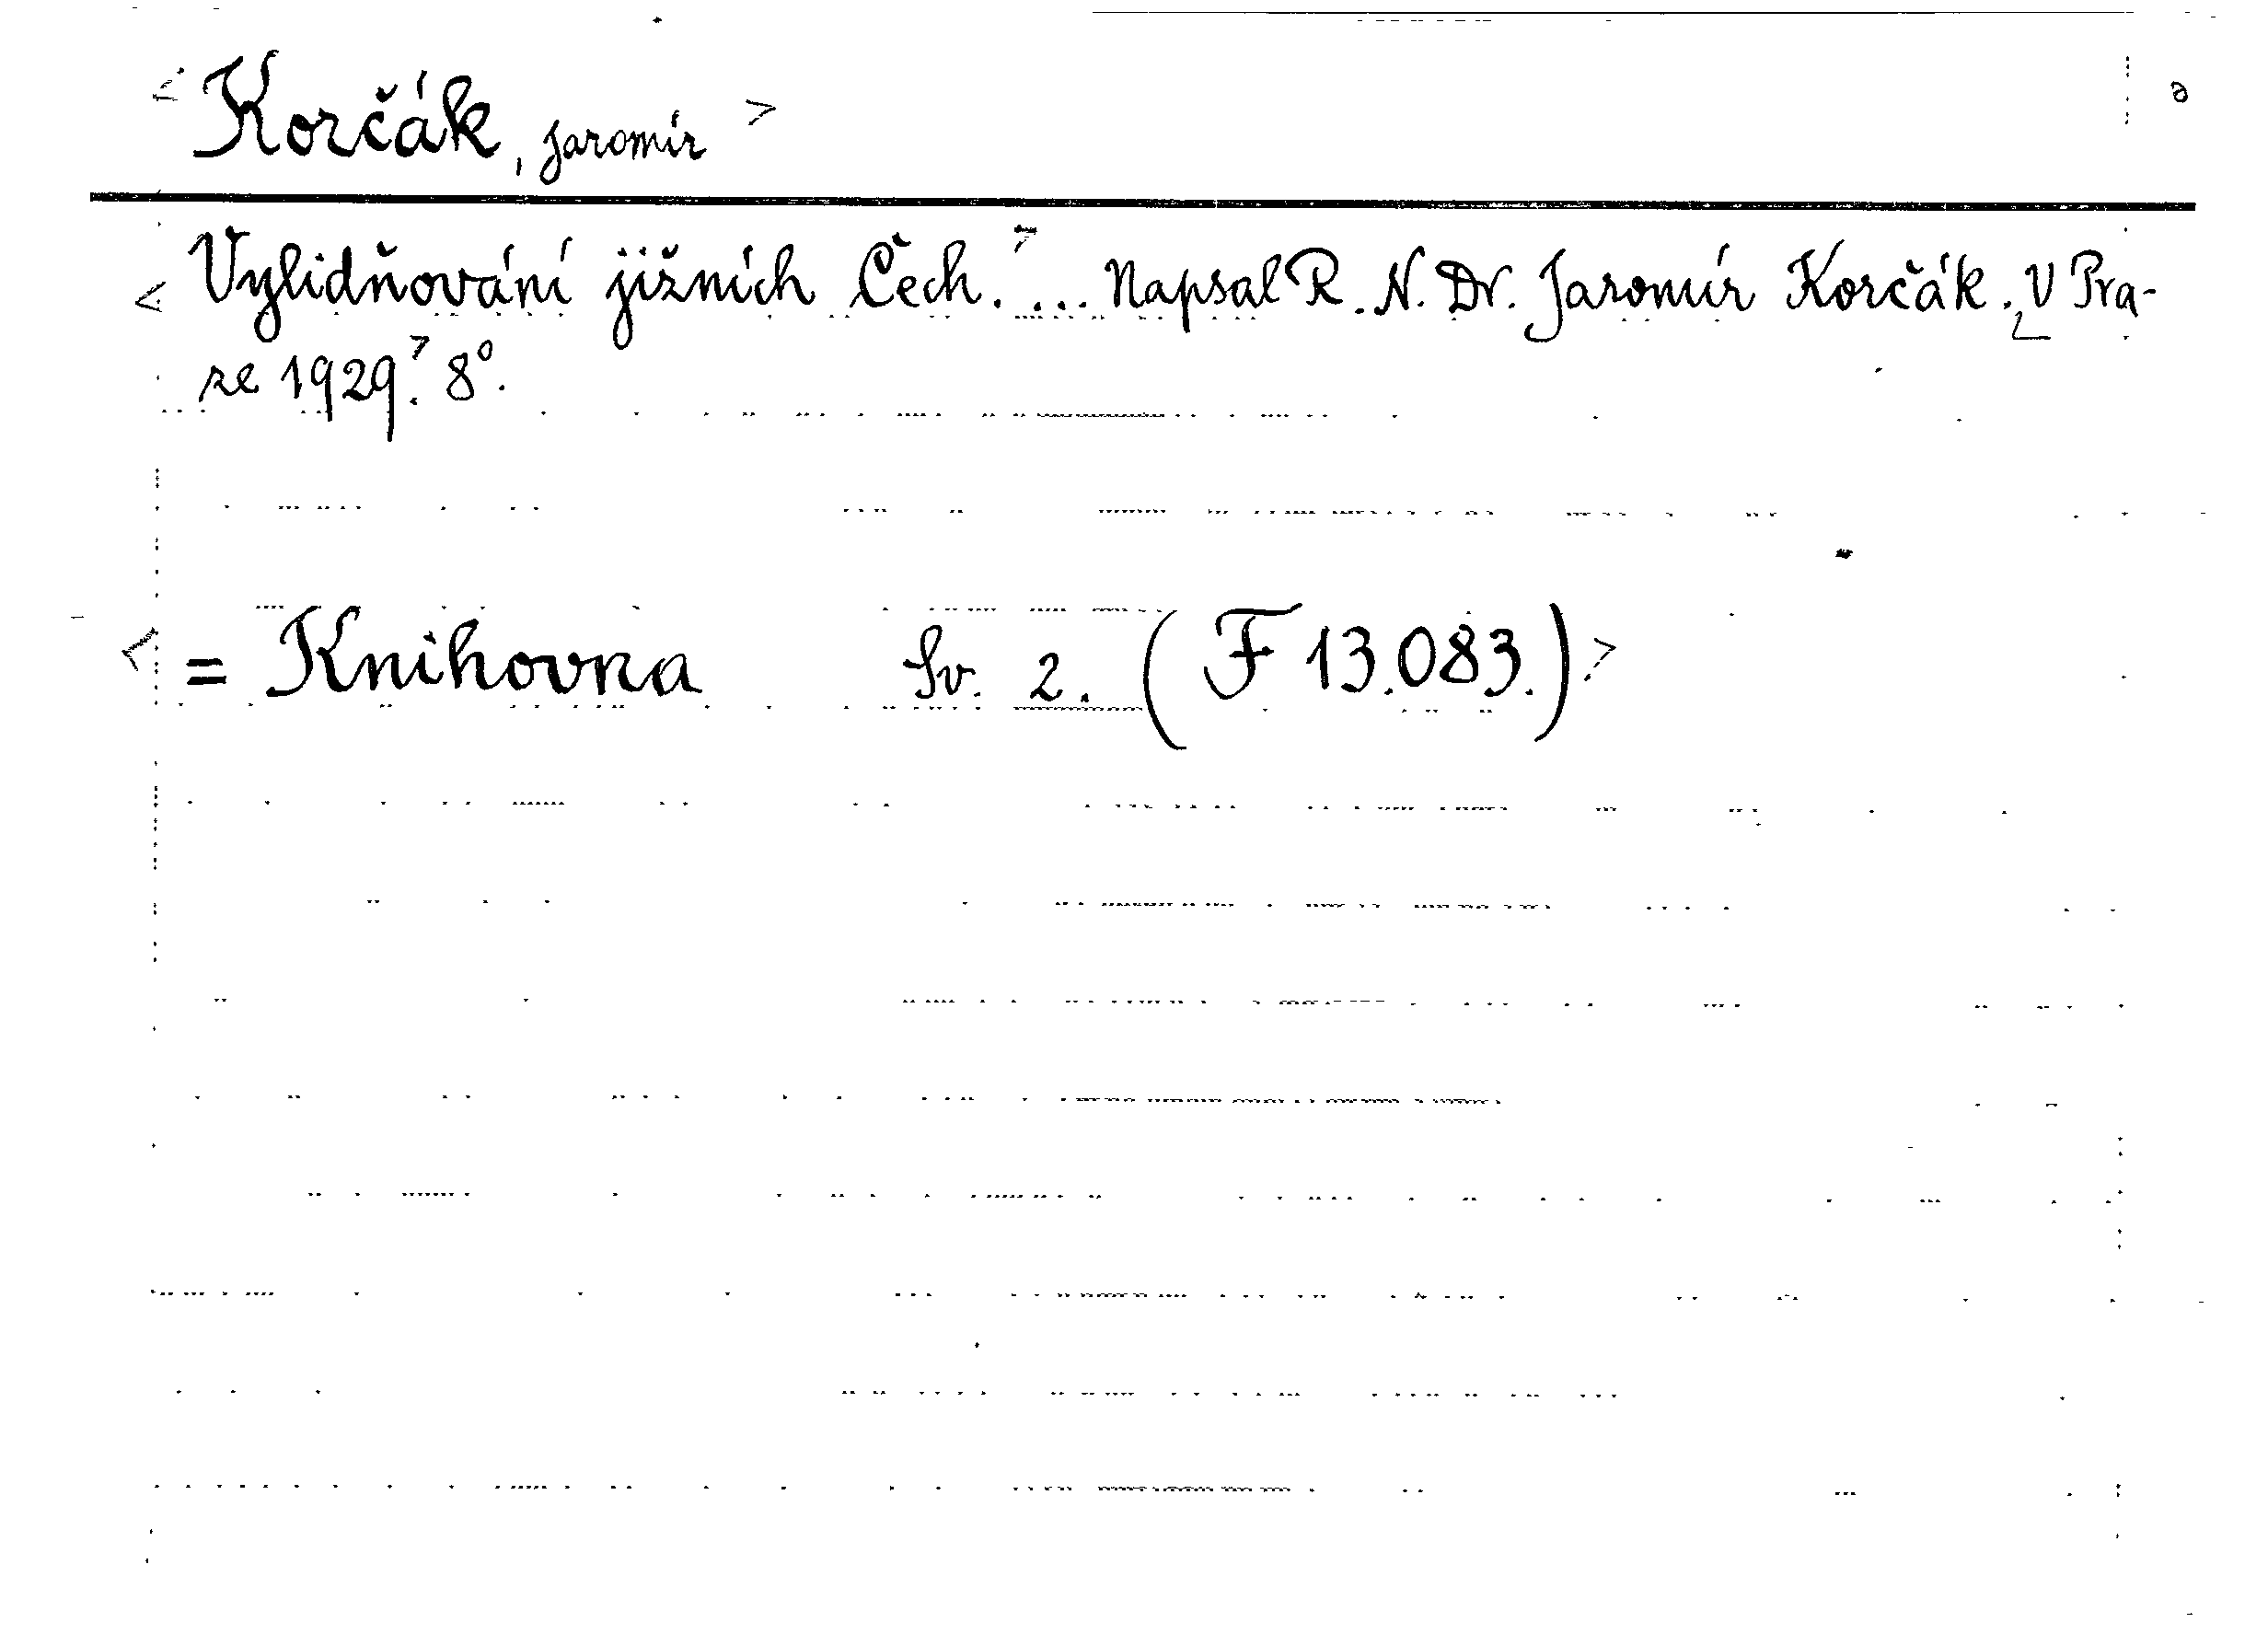 < Korčák, Jaromír > a
< Vylidňování jižních Čech.> ... Napsal R. N. Dr. Jaromír Korčák. < V Pra-
ze 1929.> 8°.
< = Knihovna Sv. 2. (F 13.083.) >